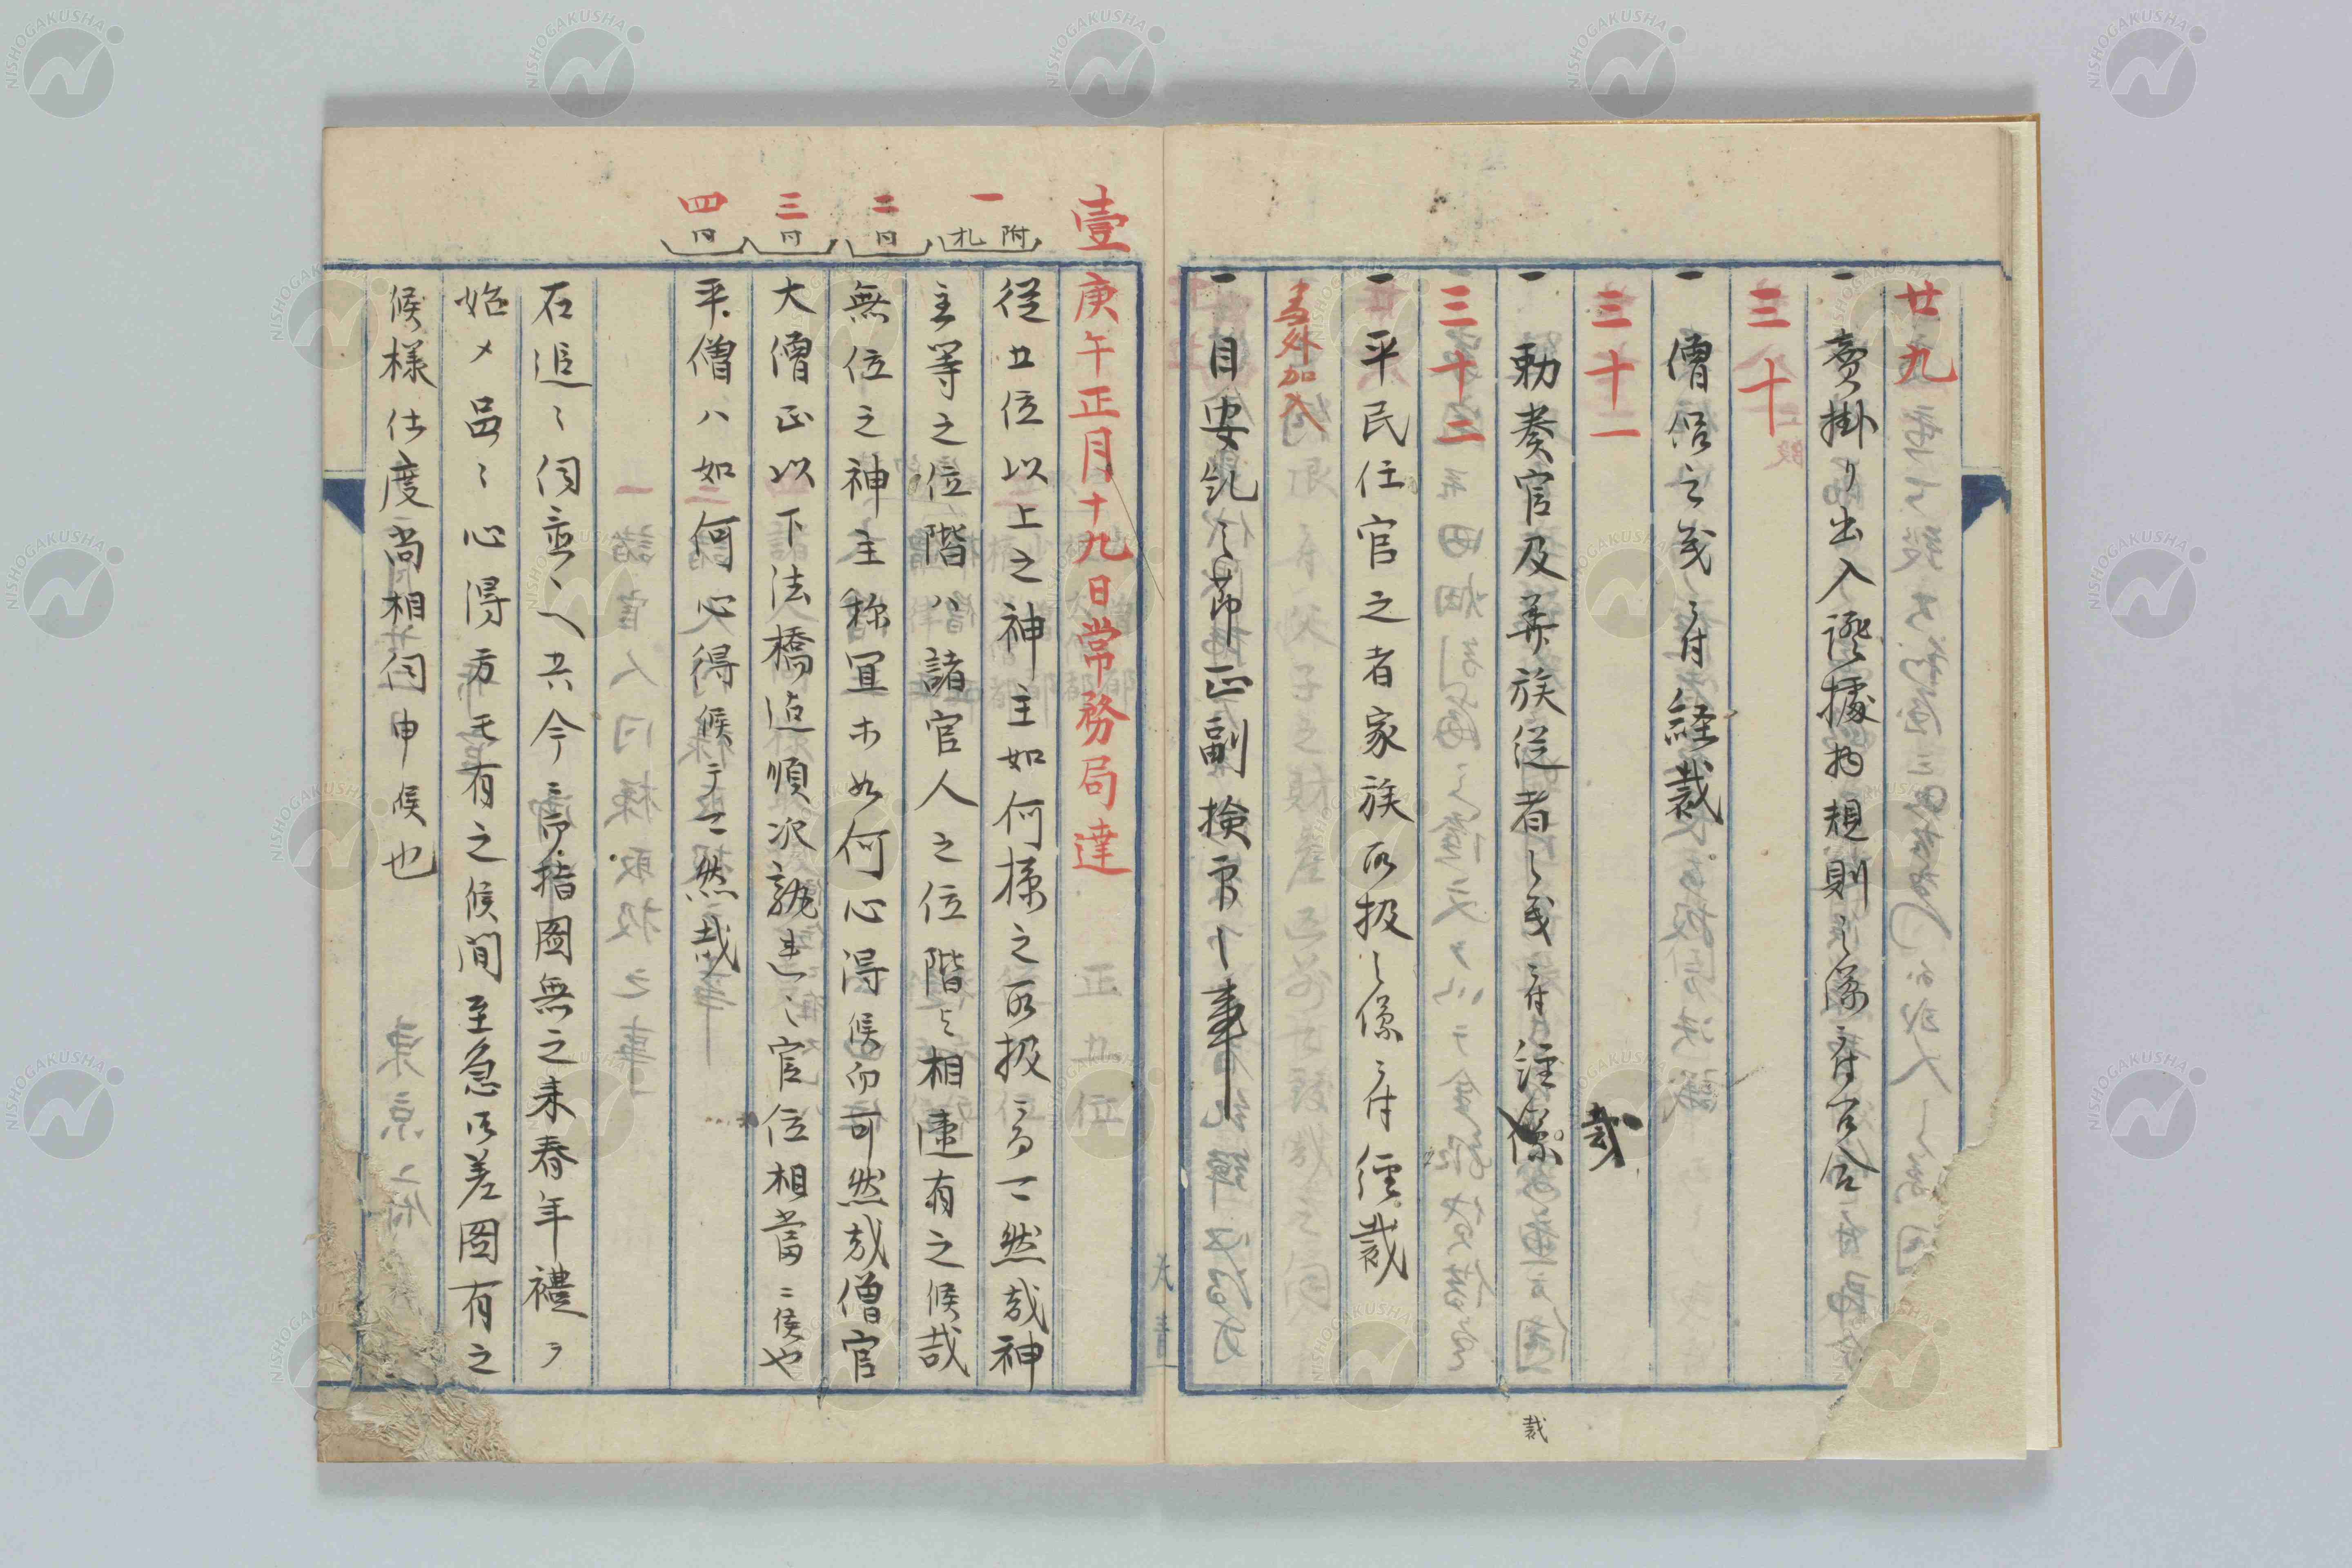 廿九
一 賣掛リ出入證據物規則之儀ニ付百合
三十
一 僧侶之義ニ付経裁
三十一
一 勅奏官及華族従者之義ニ付経
裁
三十二
一 平民任官之者家族取扱之儀ニ付経裁
書外加入
一 目安糺之節正副検官
壹
庚午正月十九日常務局達
一 附札
從五位以上之神主如何様之取扱ニ而可然哉神
主等之位階ハ諸官人之位階与相違有之候哉
二 同
無位之神主称宜ホ如何心得候而可然哉僧官
三 同
大僧正以下法橋迠順次叙進之官位相當ニ候や
四 同
平僧ハ如何心得候テ可然哉
右追々伺立候へ共今ニ御指図無之来春年禮ヲ
始メ品々心得方モ有之候間至急御差図有之
候様仕度尚相伺申候也
裁
NISHOGAKUSHA